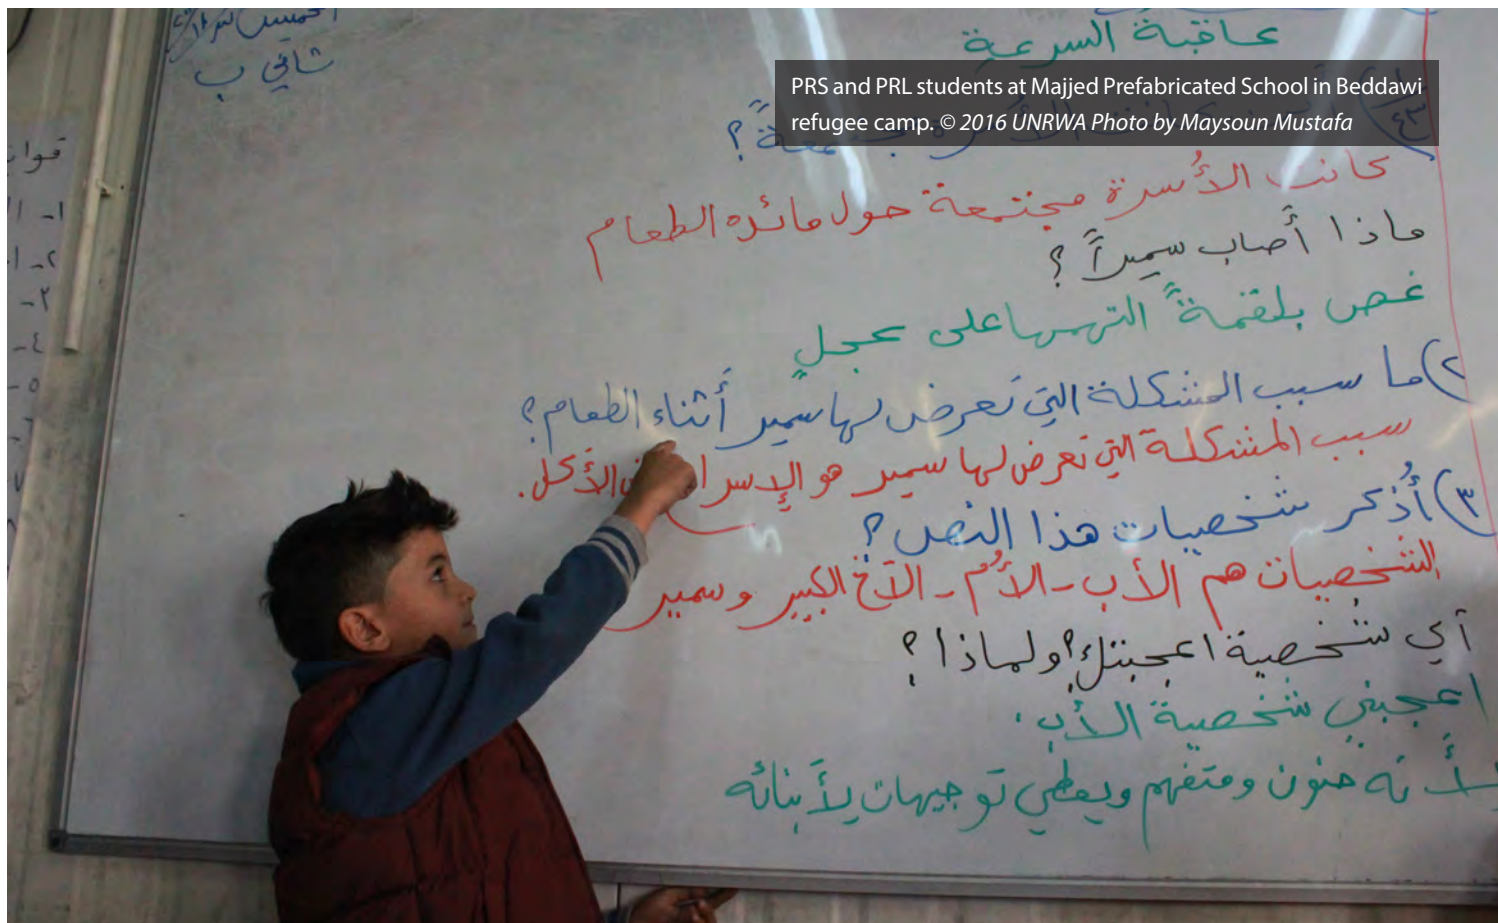 الخميس
ثاني ب
عاقبة السرعة
PRS and PRL students at Majjed Prefabricated School in Beddawi
refugee camp. © 2016 UNRWA Photo by Maysoun Mustafa
كانت الأُسرة مجتمعة حول مائده الطعام
ماذا أَصاب سميراً ؟
غص بلقمةً التهمها على عجلٍ
٢) ما سبب المشكلة التي تعرض لها سمير أَثناء الطعام؟
سبب المشكلة التي تعرض لها سمير هو الإسرا الأَكل.
٣) أُذكر شخصيات هذا النص؟
الشخصيات هم الأَب - الأُم - الأَخ الكبير و سمير
أي شخصية اعجبتك؟ ولماذا؟
اعجبني شخصية الأَب.
لأَنه حنون ومتفهم ويعطي توجيهات لأَبنائه
قوان
١-
٢-
٣-
٤-
٥-
٦-